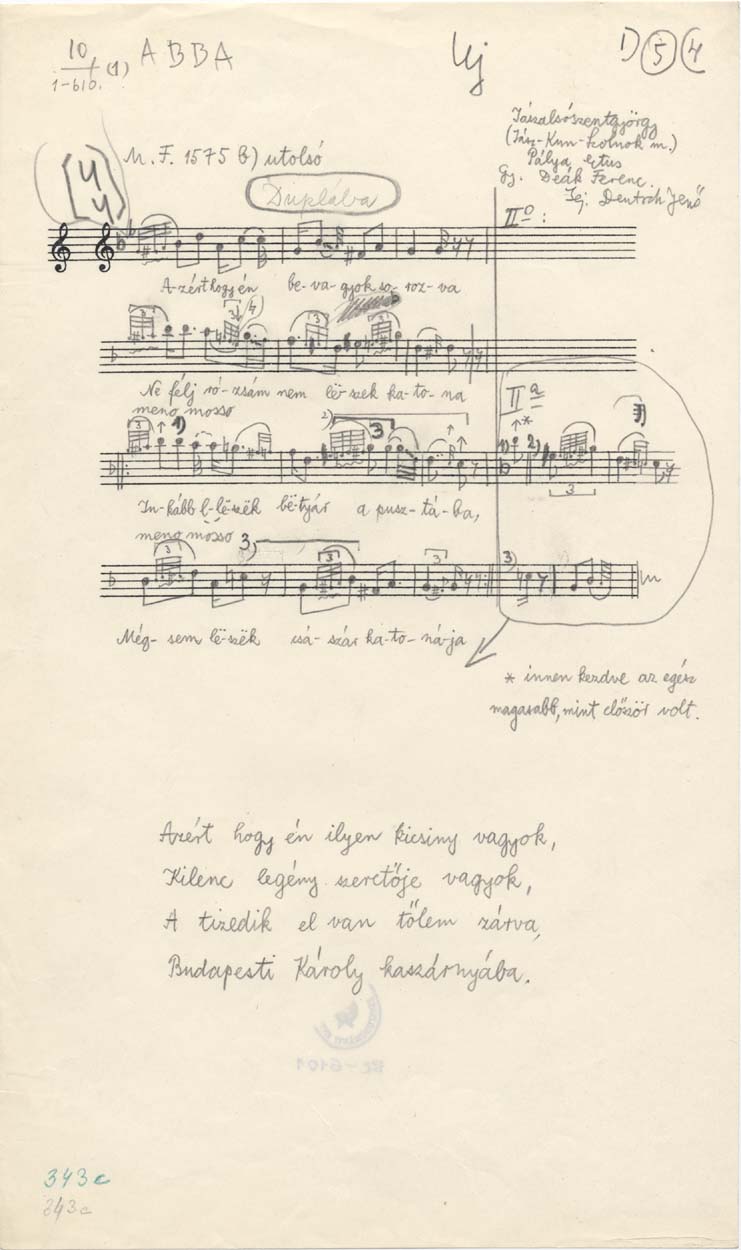 10/1-610. (1) ABBA
Uj
1) 5 4
Jászalsószentgyörgy
(Jász-Kun-Szolnok m.)
Pálya Etus
Gy. Deák Ferenc.
Lej. Deutsch Jenő
4
4
M. F. 1575 b) utolsó
Duplába
IIº :
A-zért hogy én be-va-gyok so-roz-va
3 3 4) 3 3
Ne félj ró-zsám nem lë-szek ka-to-na
meno mosso
IIª
3 1) 2) 3
*
1) 2)
3
In-kább l-lëszëk bë-tyár a pusz-tá-ba,
meno mosso
3 3) 3 3
3)
Még-sem lë-szëk csá-szár ka-to-ná-ja
* innen kezdve az egész
magasabb, mint először volt.
Azért hogy én ilyen kicsiny vagyok,
Kilenc legény szeretője vagyok,
A tizedik el van tőlem zárva,
Budapesti Károly kaszárnyába.
BR-6101
343c
343c